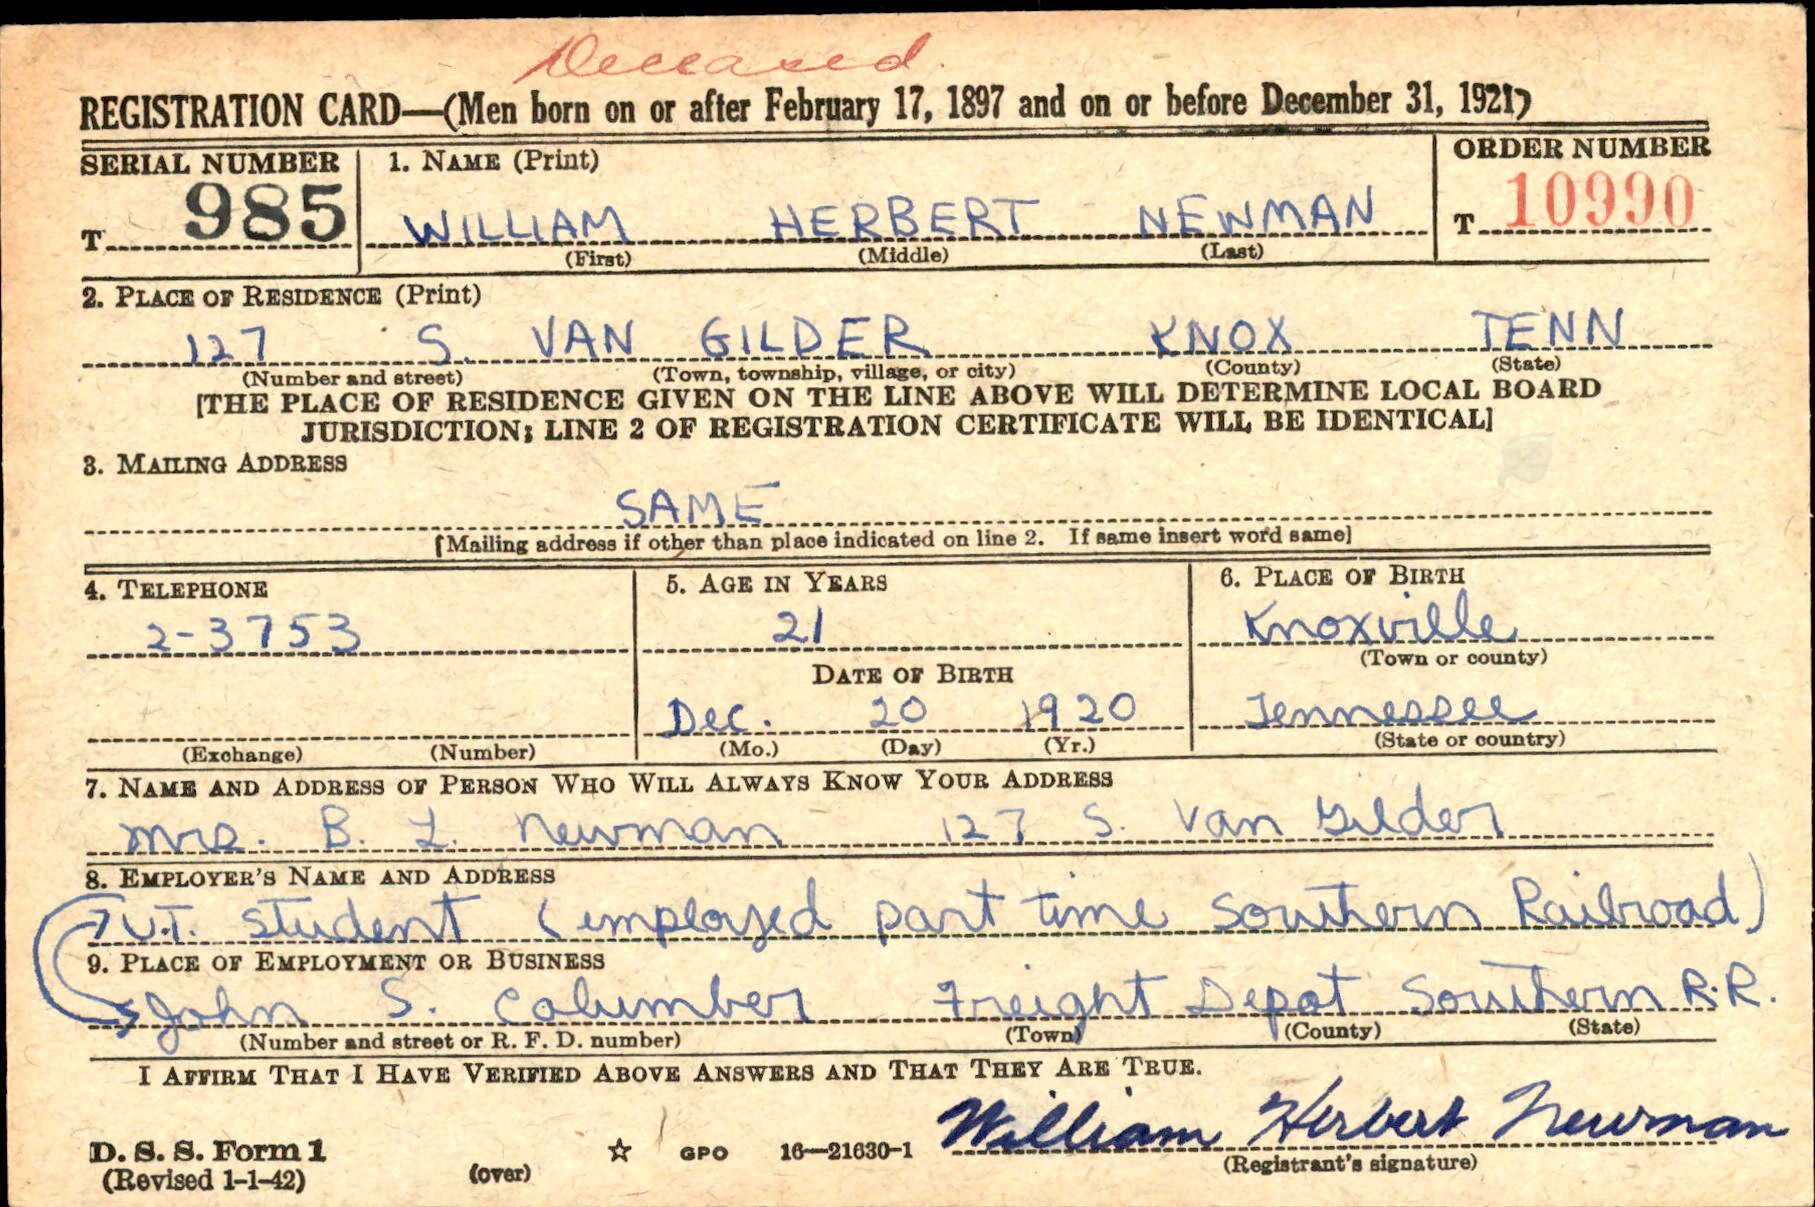 Deceased
REGISTRATION CARD—(Men born on or after February 17, 1897 and on or before December 31, 1921)
SERIAL NUMBER 1. NAME (Print) ORDER NUMBER
T 985 WILLIAM HERBERT NEWMAN T 10990
(First) (Middle) (Last)
2. PLACE OF RESIDENCE (Print)
127 S. VAN GILDER KNOX TENN
(Number and street) (Town, township, village, or city) (County) (State)
[THE PLACE OF RESIDENCE GIVEN ON THE LINE ABOVE WILL DETERMINE LOCAL BOARD
JURISDICTION; LINE 2 OF REGISTRATION CERTIFICATE WILL BE IDENTICAL]
3. MAILING ADDRESS
SAME
[Mailing address if other than place indicated on line 2. If same insert word same]
4. TELEPHONE 5. AGE IN YEARS 6. PLACE OF BIRTH
2-3753 21 Knoxville
(Town or county)
DATE OF BIRTH
Dec. 20 1920 Tennessee
(Exchange) (Number) (Mo.) (Day) (Yr.) (State or country)
7. NAME AND ADDRESS OF PERSON WHO WILL ALWAYS KNOW YOUR ADDRESS
Mrs. B. L. Newman 127 S. Van Gilder
8. EMPLOYER'S NAME AND ADDRESS
U.T. student (employed part time Southern Railroad)
9. PLACE OF EMPLOYMENT OR BUSINESS
John S. Columber Freight Depot Southern R.R.
(Number and street or R. F. D. number) (Town) (County) (State)
I AFFIRM THAT I HAVE VERIFIED ABOVE ANSWERS AND THAT THEY ARE TRUE.
William Herbert Newman
D. S. S. Form 1 GPO 16—21630-1
(Revised 1-1-42) (over) (Registrant's signature)